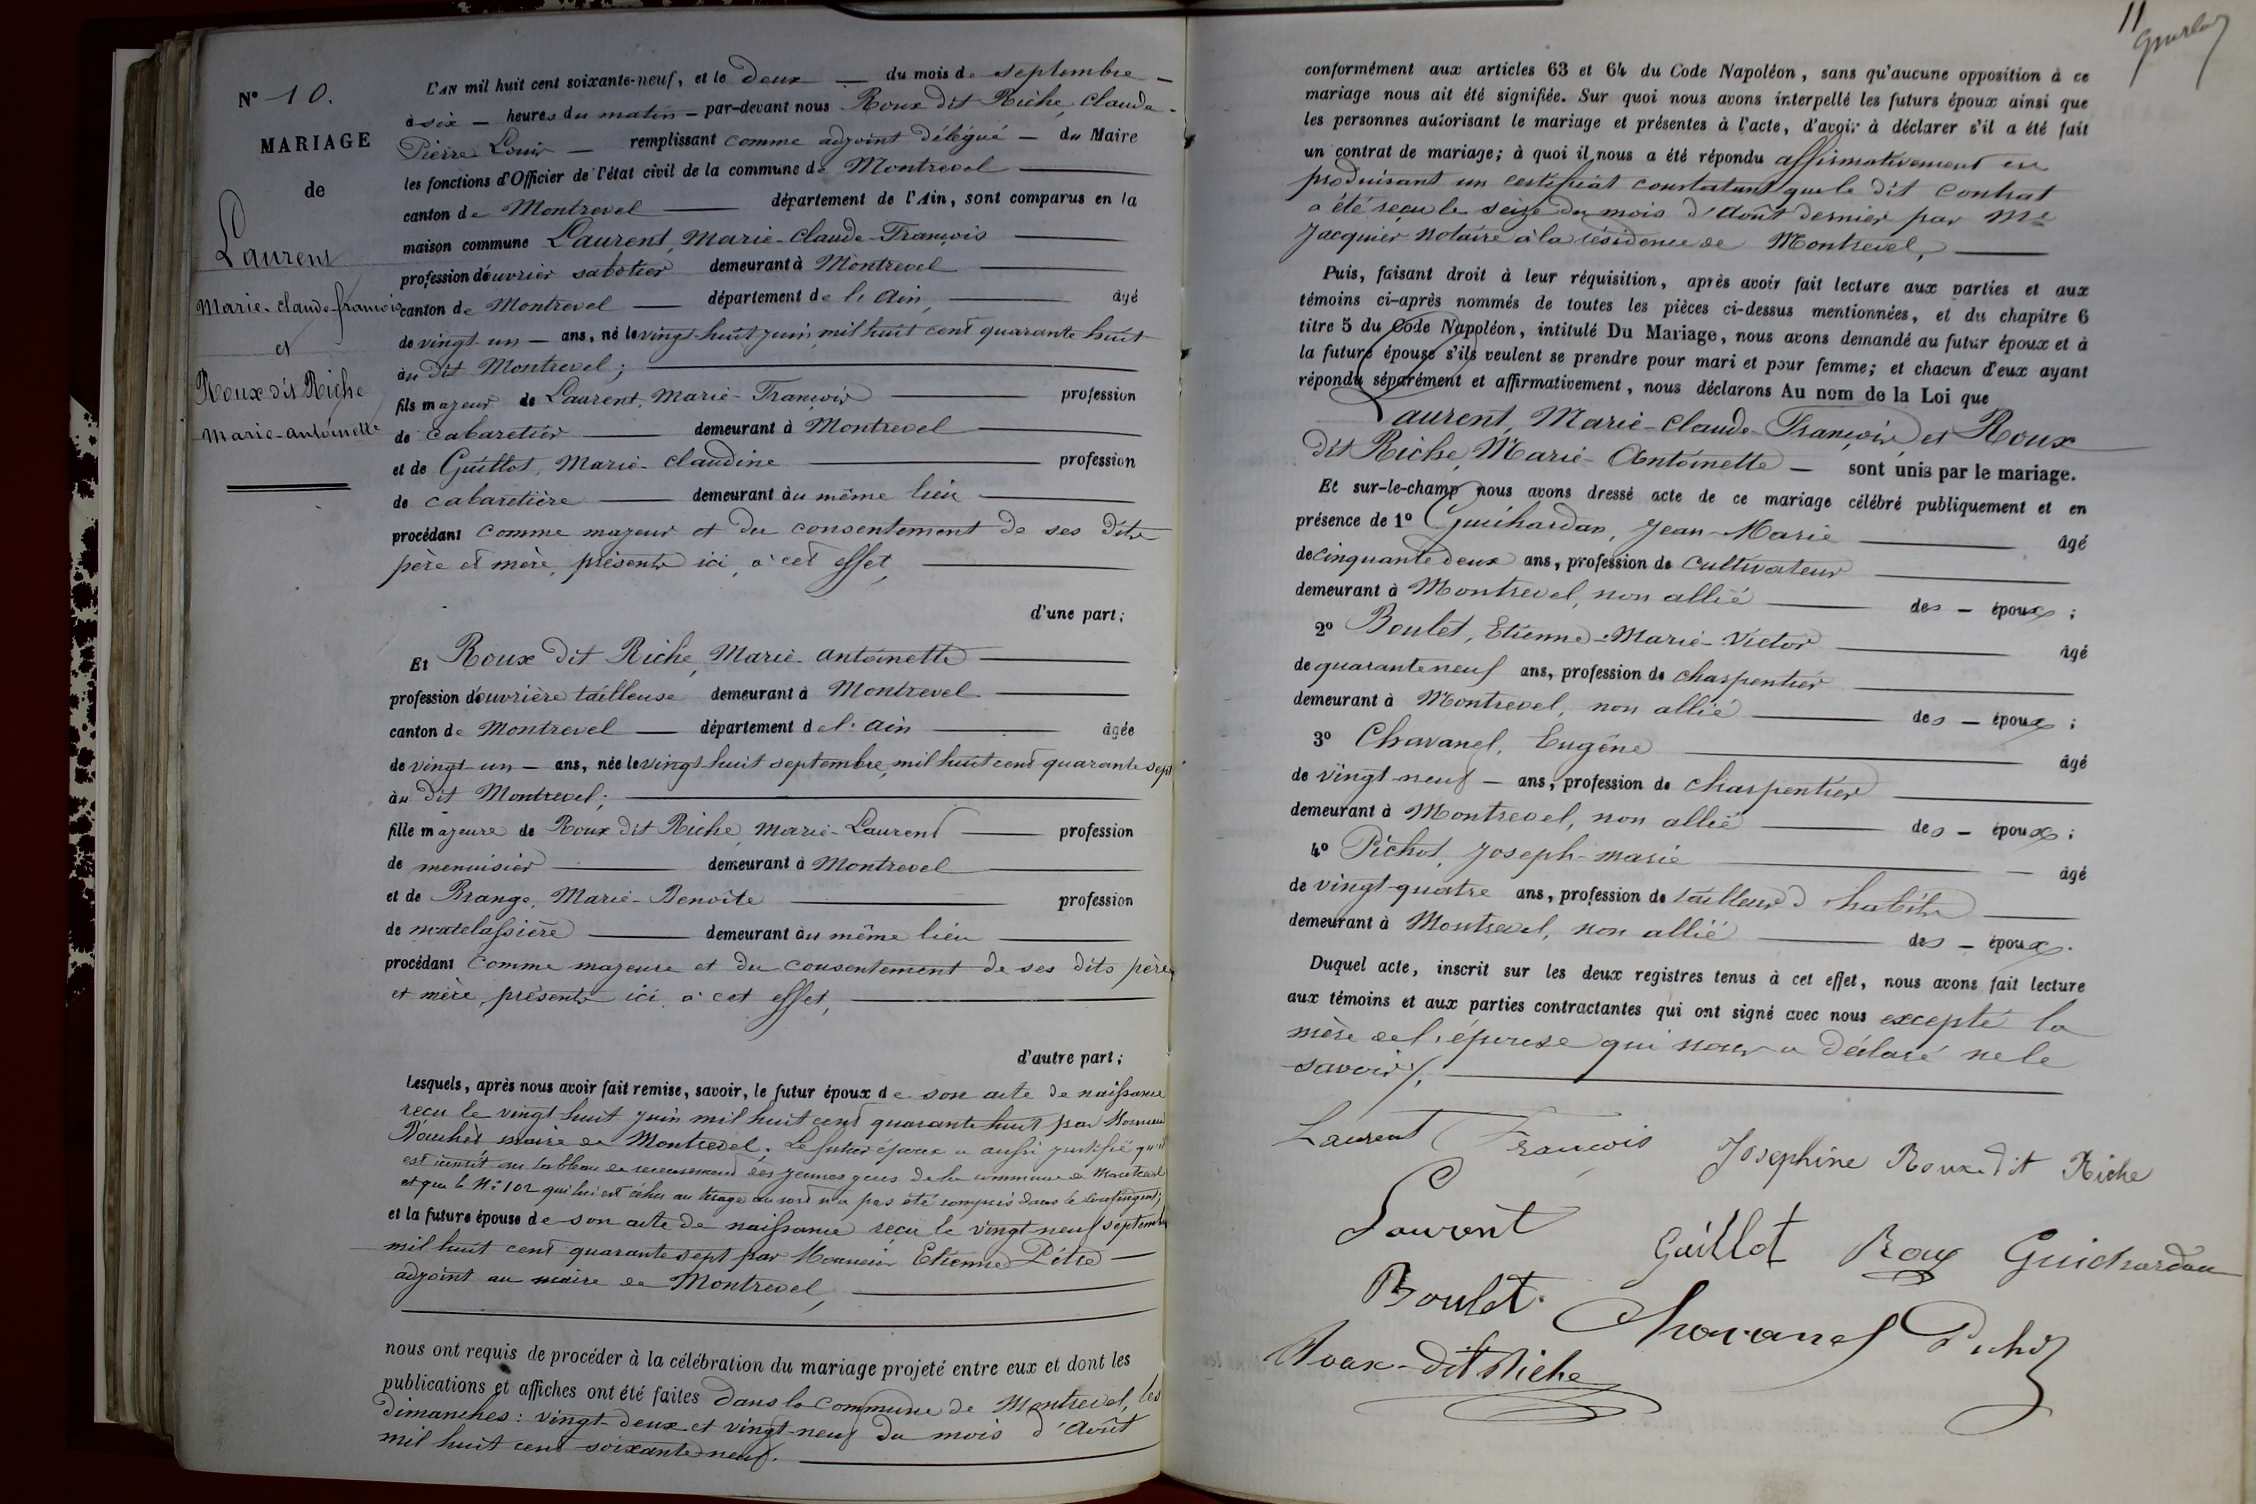 N° 10.
MARIAGE
de
Laurent
Marie-Claude-François
et
Roux dit Riche
Marie-antoinette
L'AN mil huit cent soixante-neuf, et le deux — du mois de septembre —
à six — heures du matin — par-devant nous Roux dit Riche, Claude-
Pierre Louis — remplissant comme adjoint délégué — du Maire
les fonctions d'Officier de l'état civil de la commune de Montrevel
canton de Montrevel — département de l'Ain, sont comparus en la
maison commune Laurent, Marie-Claude-François
profession d'ouvrier sabotier demeurant à Montrevel
canton de Montrevel — département de l'Ain, — âgé
de vingt-un — ans, né le vingt-huit juin, mil huit cent quarante huit
àu dit Montrevel;
fils majeur de Laurent, Marie-François — profession
de cabaretier — demeurant à Montrevel
et de Guillot, Marie-Claudine — profession
de cabaretière — demeurant àu même lieu
procédant comme majeur et du consentement de ses dits
père et mère, présents ici, à cet effet,
d'une part;
Et Roux dit Riche, Marie-antoinette
profession d'ouvrière tailleuse demeurant à Montrevel
canton de Montrevel — département de l'Ain — âgée
de vingt-un — ans, née le vingt-huit septembre, mil huit cent quarante sept
àu dit Montrevel;
fille majeure de Roux dit Riche, Marie-Laurent — profession
de menuisier — demeurant à Montrevel
et de Brange, Marie-Benoîte — profession
de matelassière — demeurant àu même lieu
procédant comme majeure et du consentement de ses dits père
et mère, présents ici, à cet effet,
d'autre part;
Lesquels, après nous avoir fait remise, savoir, le futur époux de son acte de naissance
reçu le vingt huit juin mil huit cent quarante huit par Monsieur
maire de Montrevel. Le futur époux a aussi justifié qu'il
est inscrit au tableau de recensement des jeunes gens de la commune de Montrevel
et que le N° 102 qui lui est échu au tirage au sort n'a pas été compris dans le contingent;
et la future épouse de son acte de naissance reçu le vingt neuf septembre
mil huit cent quarante sept par Monsieur Etienne Pétre —
adjoint au maire de Montrevel,
nous ont requis de procéder à la célébration du mariage projeté entre eux et dont les
publications et affiches ont été faites dans la commune de Montrevel, les
dimanches: vingt-deux et vingt-neuf du mois d'Août
mil huit cent soixante neuf.
11
conformément aux articles 63 et 64 du Code Napoléon, sans qu'aucune opposition à ce
mariage nous ait été signifiée. Sur quoi nous avons interpellé les futurs époux ainsi que
les personnes autorisant le mariage et présentes à l'acte, d'avoir à déclarer s'il a été fait
un contrat de mariage; à quoi il nous a été répondu affirmativement en
produisant un certificat constatant que le dit contrat
a été reçu le seize du mois d'Août dernier par Me
Jacquier Notaire à la résidence de Montrevel,
Puis, faisant droit à leur réquisition, après avoir fait lecture aux parties et aux
témoins ci-après nommés de toutes les pièces ci-dessus mentionnées, et du chapitre 6
titre 5 du Code Napoléon, intitulé Du Mariage, nous avons demandé au futur époux et à
la future épouse s'ils veulent se prendre pour mari et pour femme; et chacun d'eux ayant
répondu séparément et affirmativement, nous déclarons Au nom de la Loi que
Laurent, Marie-Claude-François, et Roux
dit Riche, Marie-Antoinette — sont unis par le mariage.
Et sur-le-champ nous avons dressé acte de ce mariage célébré publiquement et en
présence de 1° Guichardan, Jean-Marie — âgé
de cinquante deux ans, profession de cultivateur
demeurant à Montrevel, non allié — des — époux;
2° Boulet, Etienne-Marie-Victor — âgé
de quarante neuf ans, profession de charpentier
demeurant à Montrevel, non allié — des — époux;
3° Chavanel, Eugène — âgé
de vingt-neuf — ans, profession de charpentier
demeurant à Montrevel, non allié — des — époux;
4° Pichot, Joseph-marie — âgé
de vingt-quatre ans, profession de tailleur d'habits
demeurant à Montrevel, non allié — des — époux.
Duquel acte, inscrit sur les deux registres tenus à cet effet, nous avons fait lecture
aux témoins et aux parties contractantes qui ont signé avec nous excepté la
mère de l'épouse qui nous a déclaré ne le
savoir.
Laurent François Josephine Roux dit Riche
Laurent Guillot Roux Guichardan
Boulet Chavanel Pichot
Roux-dit Riche